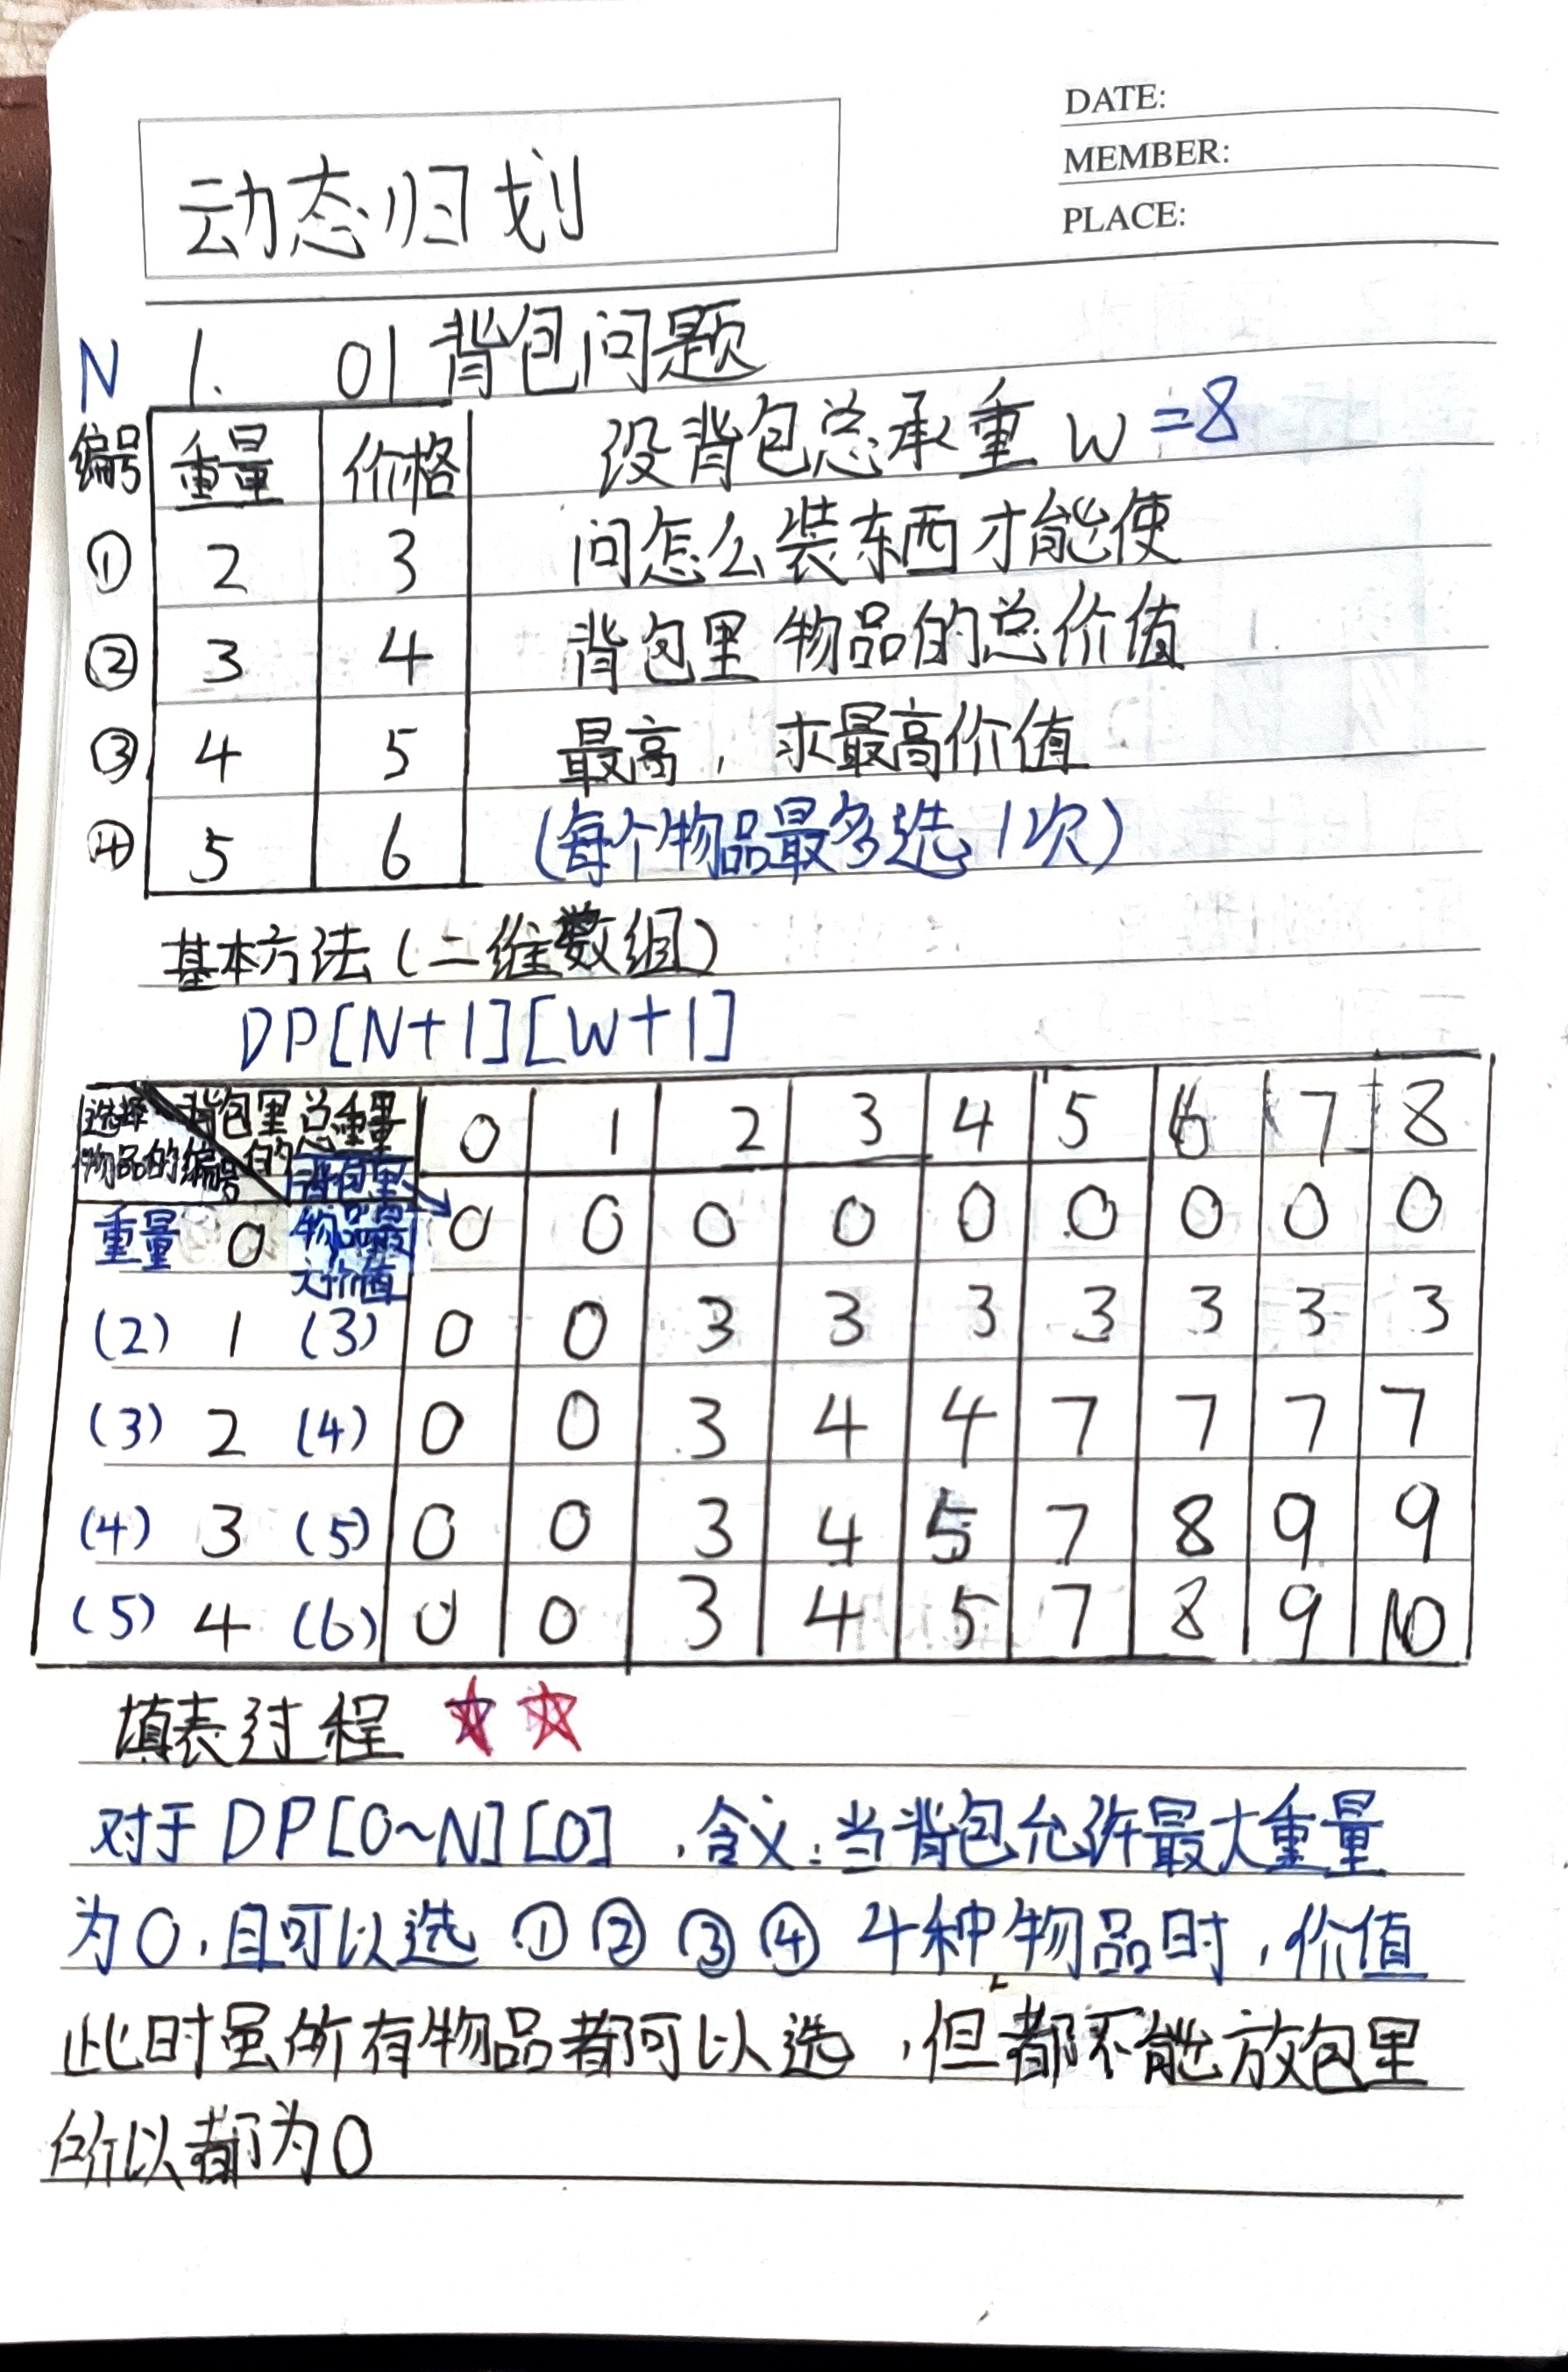 DATE:
MEMBER:
PLACE:
动态归划
N 1. 01背包问题
编号 重量 价格 设背包总承重 W =8
① 2 3 问怎么装东西才能使
② 3 4 背包里物品的总价值
③ 4 5 最高，求最高价值
④ 5 6 (每个物品最多选1次)
基本方法(二维数组)
DP[N+1][W+1]
选择物品的编号 背包里的总重量 0 1 2 3 4 5 6 7 8
重量 0 背包里物品最大价值 0 0 0 0 0 0 0 0 0
(2) 1 (3) 0 0 3 3 3 3 3 3 3
(3) 2 (4) 0 0 3 4 4 7 7 7 7
(4) 3 (5) 0 0 3 4 5 7 8 9 9
(5) 4 (6) 0 0 3 4 5 7 8 9 10
填表过程 ☆☆
对于DP[0~N][0]，含义：当背包允许最大重量
为0，且可以选①②③④4种物品时，价值
此时虽所有物品都可以选，但都不能放包里
所以都为0